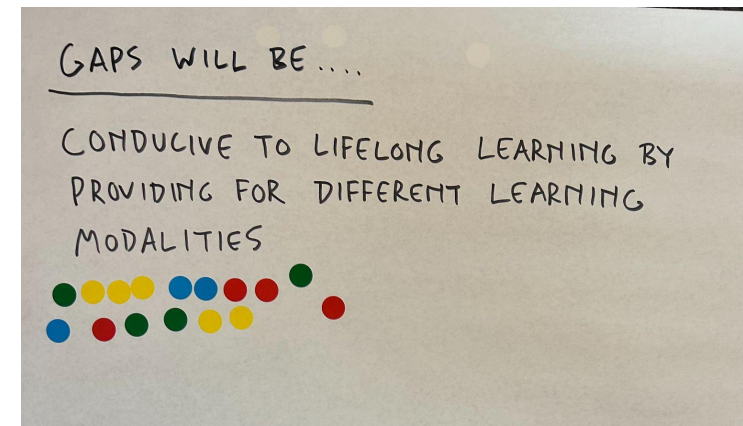 GAPS WILL BE....
CONDUCIVE TO LIFELONG LEARNING BY
PROVIDING FOR DIFFERENT LEARNING
MODALITIES